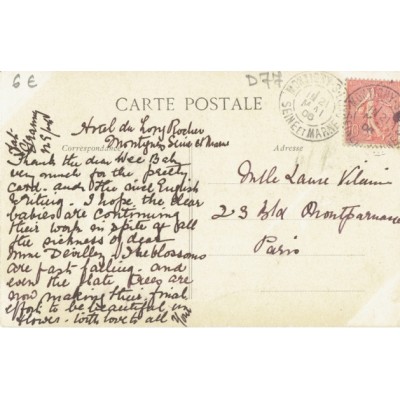 6 €
D77
CARTE POSTALE
Correspondance
Adresse
MONTIGNY
SEINE ET MARNE
Hotel du Long Rocher
Montigny Seine et Marne
Thank the dear Wee Bab
very much for the pretty
card. and the nice English
writing. I hope the dear
babies are continuing
their work in spite of all
the sickness of dear
Mme Devilley. The blossoms
are fast falling. and
even the late trees are
now making their final
effort to be beautiful in
flower. with love to all
Mlle Laure Vilain
23 Bld Montparnasse
Paris